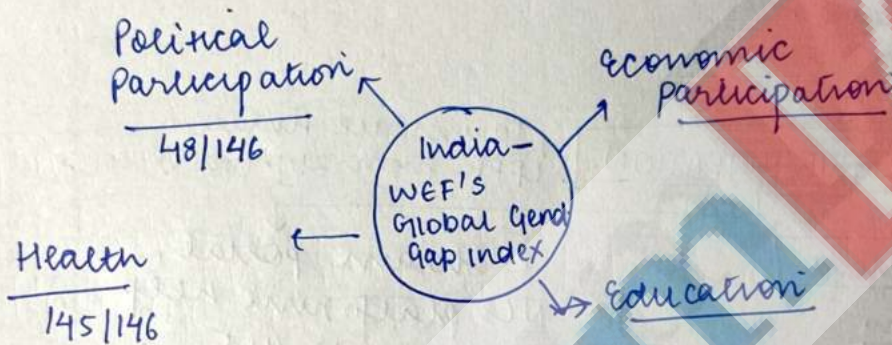 Political
Participation
48/146
Economic
Participation
India-
WEF's
Global Gend
Gap index
Health
145/146
Education